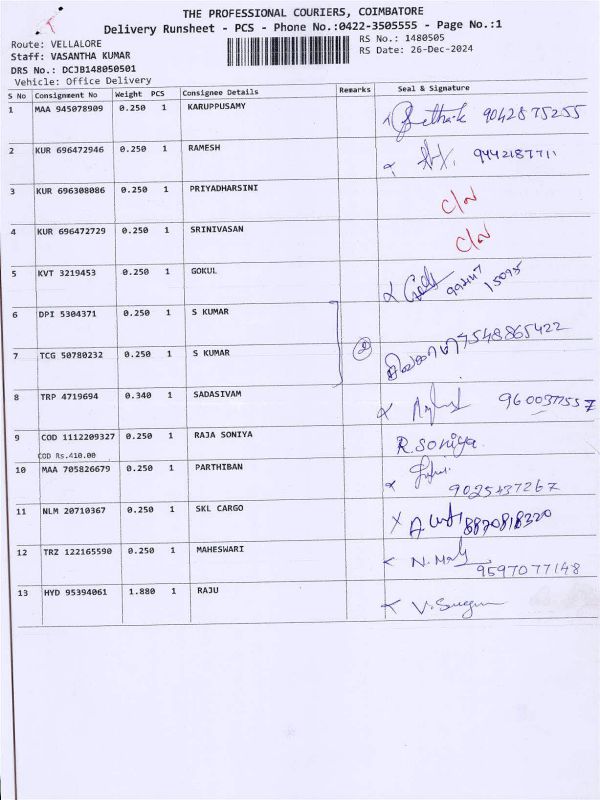 THE PROFESSIONAL COURIERS, COIMBATORE
Delivery Runsheet - PCS - Phone No.:0422-3505555 - Page No.:1
Route: VELLALORE
RS No.: 1480505
Staff: VASANTHA KUMAR
RS Date: 26-Dec-2024
DRS No.: DCJB148050501
Vehicle: Office Delivery
S No Consignment No Weight PCS Consignee Details Remarks Seal & Signature
1 MAA 945078909 0.250 1 KARUPPUSAMY 9042875255
2 KUR 696472946 0.250 1 RAMESH 9442187711
3 KUR 696308086 0.250 1 PRIYADHARSINI C/N
4 KUR 696472729 0.250 1 SRINIVASAN C/N
5 KVT 3219453 0.250 1 GOKUL
6 DPI 5304371 0.250 1 S KUMAR
7 TCG 50780232 0.250 1 S KUMAR 2 7548865422
8 TRP 4719694 0.340 1 SADASIVAM
9 COD 1112209327 0.250 1 RAJA SONIYA R.Soniya.
COD Rs.410.00
10 MAA 705826679 0.250 1 PARTHIBAN
9025437267
11 NLM 20710367 0.250 1 SKL CARGO 8870818320
12 TRZ 122165590 0.250 1 MAHESWARI
9597077148
13 HYD 95394061 1.880 1 RAJU